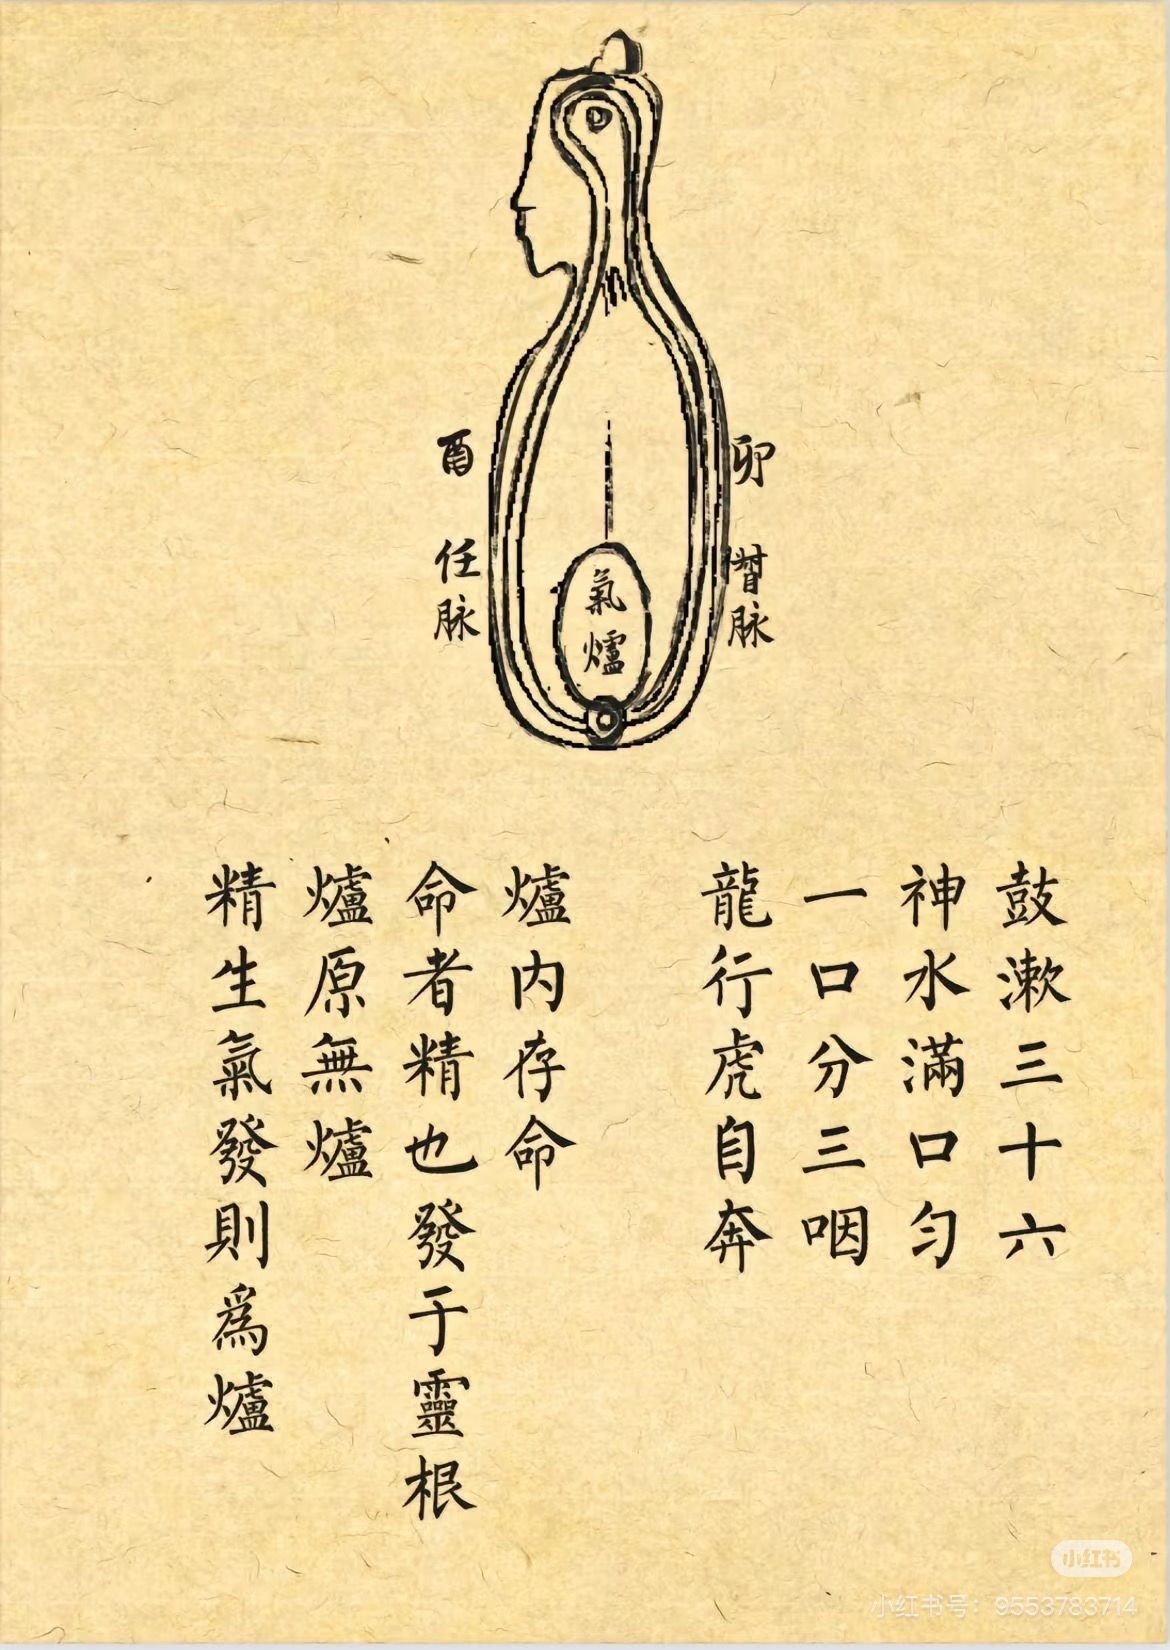 卯
督脉
酉
任脉
氣爐
鼓漱三十六
神水滿口匀
一口分三咽
龍行虎自奔
爐内存命
命者精也發于靈根
爐原無爐
精生氣發則爲爐
小红书
小红书号：9553783714